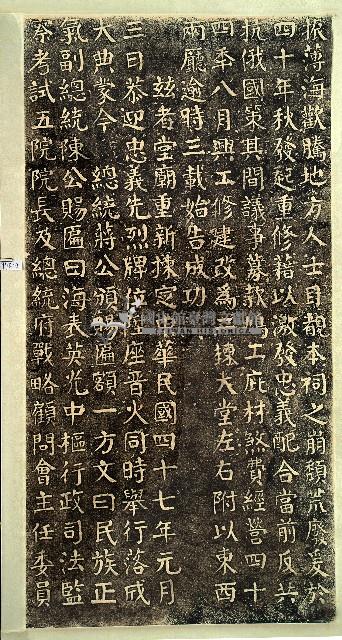 振薄海歡騰地方人士目覩本祠之崩頹荒廢爰於
四十年秋發起重修藉以激發忠義配合當前反共
抗俄國策其間議事募款鳩工庇材煞費經營四十
四年八月興工修建改為三棟大堂左右附以東西
兩廳逾時三載始告成功
茲者堂廟重新擇定中華民國四十七年元月
三日恭迎忠義先烈牌位陞座晉火同時舉行落成
大典蒙今 總統蔣公頒賜匾額一方文曰民族正
氣副總統陳公賜匾曰海表英光中樞行政司法監
察考試五院院長及總統府戰略顧問會主任委員